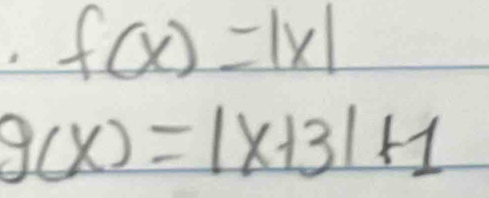 . f(x) = |x|
g(x) = |x+3| + 1